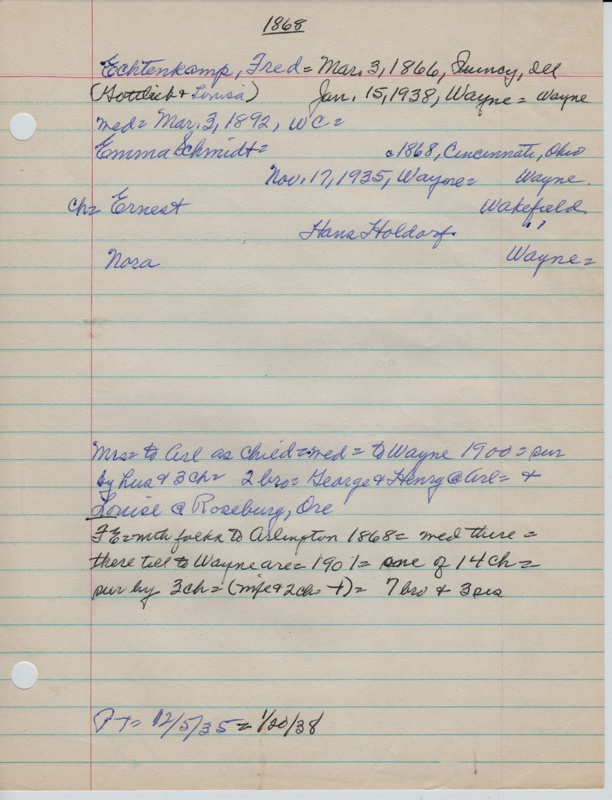 1868
Echtenkamp, Fred = Mar. 3, 1866, Quincy, Ill
(Gottlieb & Louisa) Jan. 15, 1938, Wayne = Wayne
med = Mar, 3, 1892, WC =
Emma Schmidt = c1868, Cincinnati, Ohio
Nov. 17, 1935, Wayne = Wayne.
ch = Ernest Wakefield
Hans Holdorf. "
Nora Wayne =
Mrs = to Arl as child = med = to Wayne 1900 = sur
by hus & 3 ch = 2 bro = George & Henry @ Arl = &
Louise @ Roseburg, Ore
FE = with folks to Arlington 1868 = med there =
there till to Wayne are = 1901 = one of 14 ch =
sur by 3 ch = (wife & 2 ch +) = 7 bro & 3 sis
PT = 12/5/35 = 1/20/38